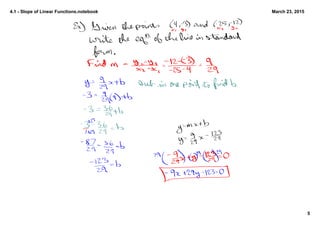 4.1 - Slope of Linear Functions.notebook
March 23, 2015
Ex) Given the points (4,-3) and (-25,-12)
x₁ y₁ x₂ y₂
write the eqⁿ of the line in standard
form.
Find m = y₂-y₁/x₂-x₁ = -12-(-3)/-25-4 = 9/29
y = 9/29 x + b
Sub in one point to find b
-3 = 9/29 (4) + b
-3 = 36/29 + b
-3 - 36/29 = b
-87/29 - 36/29 = b
-123/29 = b
y = mx + b
y = 9/29 x - 123/29
-9x + 29y + 123 = 0
5